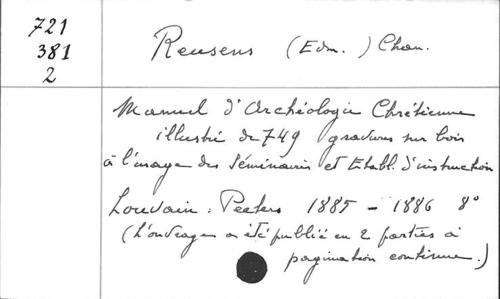 721
381
2
Reusens (Edm.) Chan.
Manuel d'Archéologie Chrétienne
illustré de 749 gravures sur bois
à l'usage des Séminaires et Etabl. d'instruction
Louvain : Peeters 1885 - 1886 8°
(L'ouvrage a été publié en 2 parties à
pagination continue.)